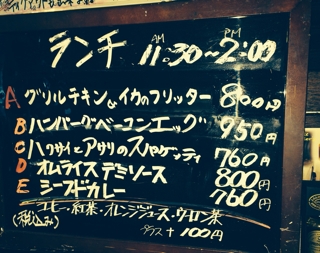 ランチ AM 11:30〜PM 2:00
A グリルチキン&イカのフリッター 800円
B ハンバーグベーコンエッグ 950円
C ハクサイとアサリのスパゲッティ 760円
D オムライスデミソース 800円
E シーフドカレー 760円
コヒー・紅茶・オレンジジュース・ウーロン茶
(税込み) プラス+100円